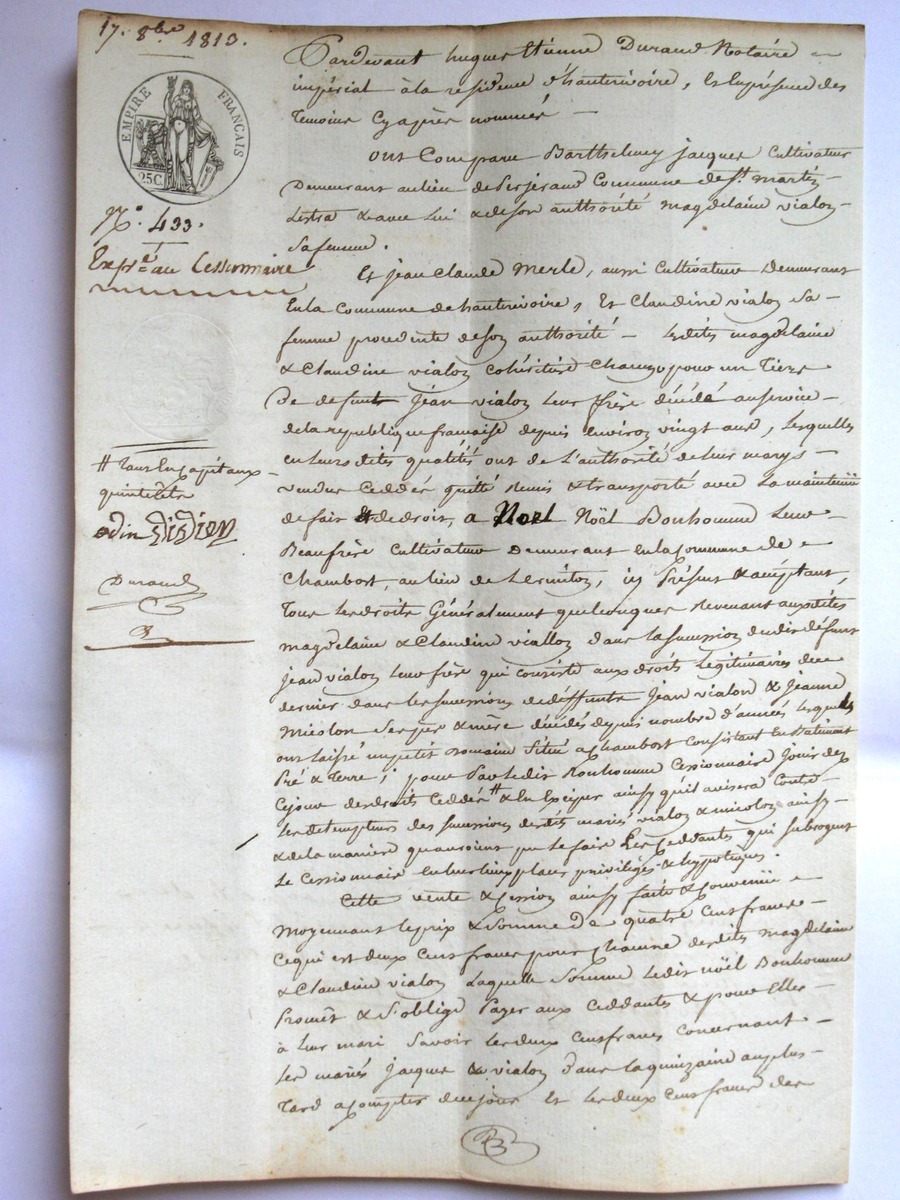 17. 8bre 1813.
EMPIRE FRANÇAIS
25C
No. 433.
Expé. au Cessionnaire
# tant en Capitaux
qu'intérêts
Durand
Pardevant hugues Etienne Durand Notaire
impérial à la résidence d'hauterivoire, et En présence des
Temoins Cy après nommés
ont Comparu Barthelmy jacques Cultivateur
Demeurant au lieu de Commune de St. martin
Lestra & avec Lui & de son authorité magdelaine vialon
Sa femme.
Et jean Claude Merle, aussi Cultivateur Demeurant
En la Commune de hauterivoire, Et Claudine vialon Sa
femme procedente de son authorité — Lesdites magdelaine
& Claudine vialon Cohéritière Chacune pour un Tiers
De defunt Jean vialon Leur frère décédé au service
de la republique française depuis environ vingt ans, Lesquelles
en leurs dites qualités ont de L'authorité de leur marys
vendu Ceddés quitté Remis & transporté avec La maintenue
de fait & de droit, a Noel Noël Bonhomme Leur
Beaufrère Cultivateur Demeurant En la Commune de
Chambost, au lieu de ici Présent & acceptant,
Tous Les droits Généralement quelconques Revenant auxdites
magdelaine & Claudine viallon dans la succession dudit défunt
jean vialon Leur frère qui consiste aux droits Légitimaires de ce
dernier dans les successions de deffunts Jean vialon & Jeanne
Miolon Ses père & mère décédés depuis nombre d'années Lesquels
ont laissé un petit Domaine Situé a Chambost Consistant En Bâtiment
Pré & Terre; pour Par Ledit Bonhomme Cessionnaire Jouir dez
Cejour des droits Ceddés # & En Exciper ainsy qu'il avisera Contre
Les detempteurs des successions desdits mariés vialon & miolon ainsy
& de la maniere qu'auroient pu le faire Les Ceddantes qui subrogent
Le Cessionnaire En leur lieu place privilèges & hypotèques.
Cette vente & Cession ainsy faite & Convenüe
Moyennant le prix & Somme De quatre Cens francs
Ce qui est deux Cens francs pour Chacune desdites Magdelaine
& Claudine vialon Laquelle Somme Ledit Noël Bonhomme
Promet & S'oblige Payer aux Ceddantes & pour Elles
à Leur mari Savoir Les deux Cens francs Concernant
Les mariés Jacques & vialon dans la quinzaine au plus
Tard a Compter de ce jour Et Les deux Cens francs des